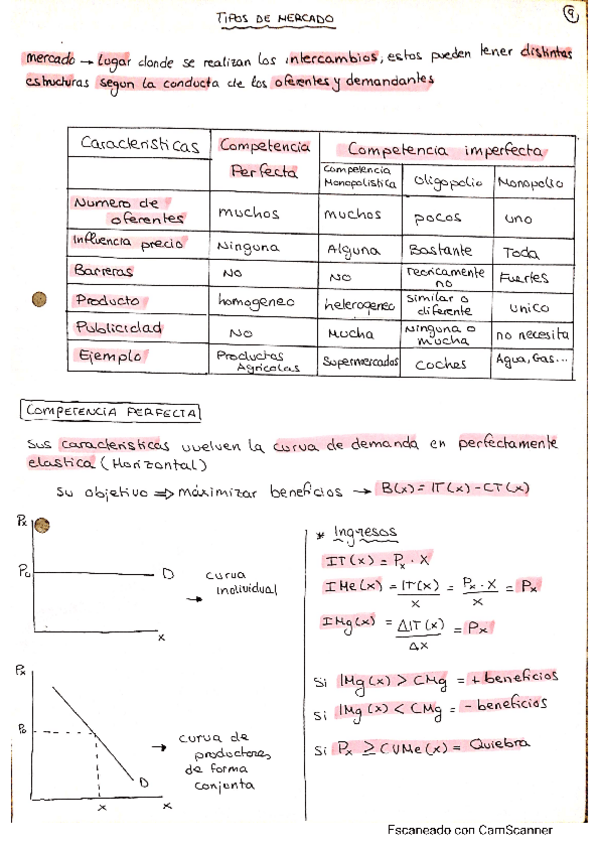 TIPOS DE MERCADO
9
mercado → Lugar donde se realizan los intercambios, estos pueden tener distintas
estructuras segun la conducta de los oferentes y demandantes
Caracteristicas Competencia Perfecta Competencia imperfecta
Competencia Monopolistica Oligopolio Monopolio
Numero de oferentes muchos muchos pocos uno
Influencia precio Ninguna Alguna Bastante Toda
Barreras No No teoricamente no Fuertes
Producto homogeneo heterogeneo similar o diferente unico
Publicidad No Mucha Ninguna o mucha no necesita
Ejemplo Productos Agricolas Supermercados coches Agua, Gas...
COMPETENCIA PERFECTA
Sus caracteristicas vuelven la curva de demanda en perfectamente
elastica (Horizontal)
Su objetivo ⇒ máximizar beneficios → B(x) = IT(x) - CT(x)
Px
Po
D
x
curva
individual
→
Px
Po
D
x
x
→ curva de
productores
de forma
conjunta
* Ingresos
IT(x) = Px · X
IMe(x) = IT(x)/x = Px · x/x = Px
IMg(x) = ΔIT(x)/Δx = Px
Si IMg(x) > CMg = + beneficios
Si IMg(x) < CMg = - beneficios
Si Px ≥ CVMe(x) = Quiebra
Escaneado con CamScanner